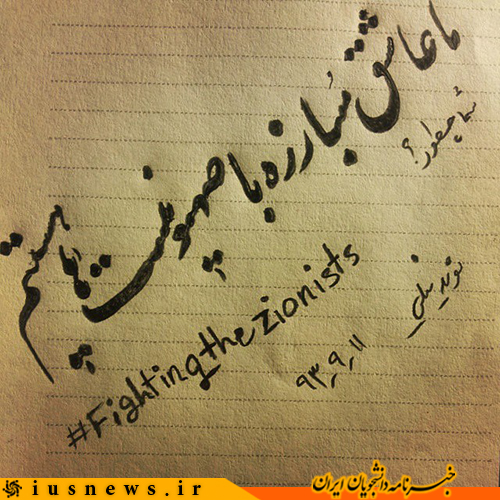 ما عاشق مبارزه با صهیونیست هستیم
شما چطور؟
#Fighting the zionists
۹۳٫۹٫۱۱
خبرنامه دانشجویان ایران
iusnews.ir